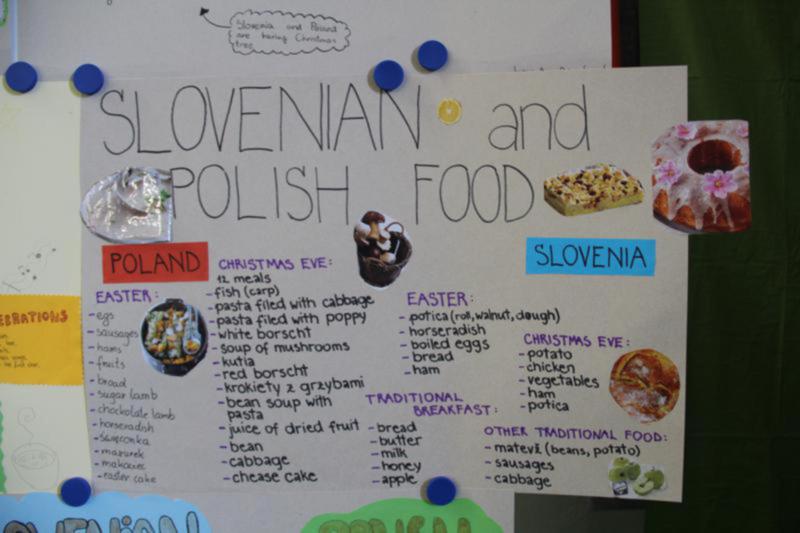 Slovenia and Poland
are having Christmas
tree.
SLOVENIAN and
POLISH FOOD
POLAND
EASTER:
- egs
- sausages
- hams
- fruits
- bread
- sugar lamb
- chocholate lamb
- horseradish
- święconka
- mazurek
- makowiec
- easter cake
CHRISTMAS EVE:
12 meals
- fish (carp)
- pasta filed with cabbage
- pasta filed with poppy
- white borscht
- soup of mushrooms
- kutia
- red borscht
- krokiety z grzybami
- bean soup with
pasta
- juice of dried fruit
- bean
- cabbage
- chease cake
SLOVENIA
EASTER:
- potica (roll, walnut, dough)
- horseradish
- boiled eggs
- bread
- ham
TRADITIONAL
BREAKFAST:
- bread
- butter
- milk
- honey
- apple
CHRISTMAS EVE:
- potato
- chicken
- vegetables
- ham
- potica
OTHER TRADITIONAL FOOD:
- matevž (beans, potato)
- sausages
- cabbage